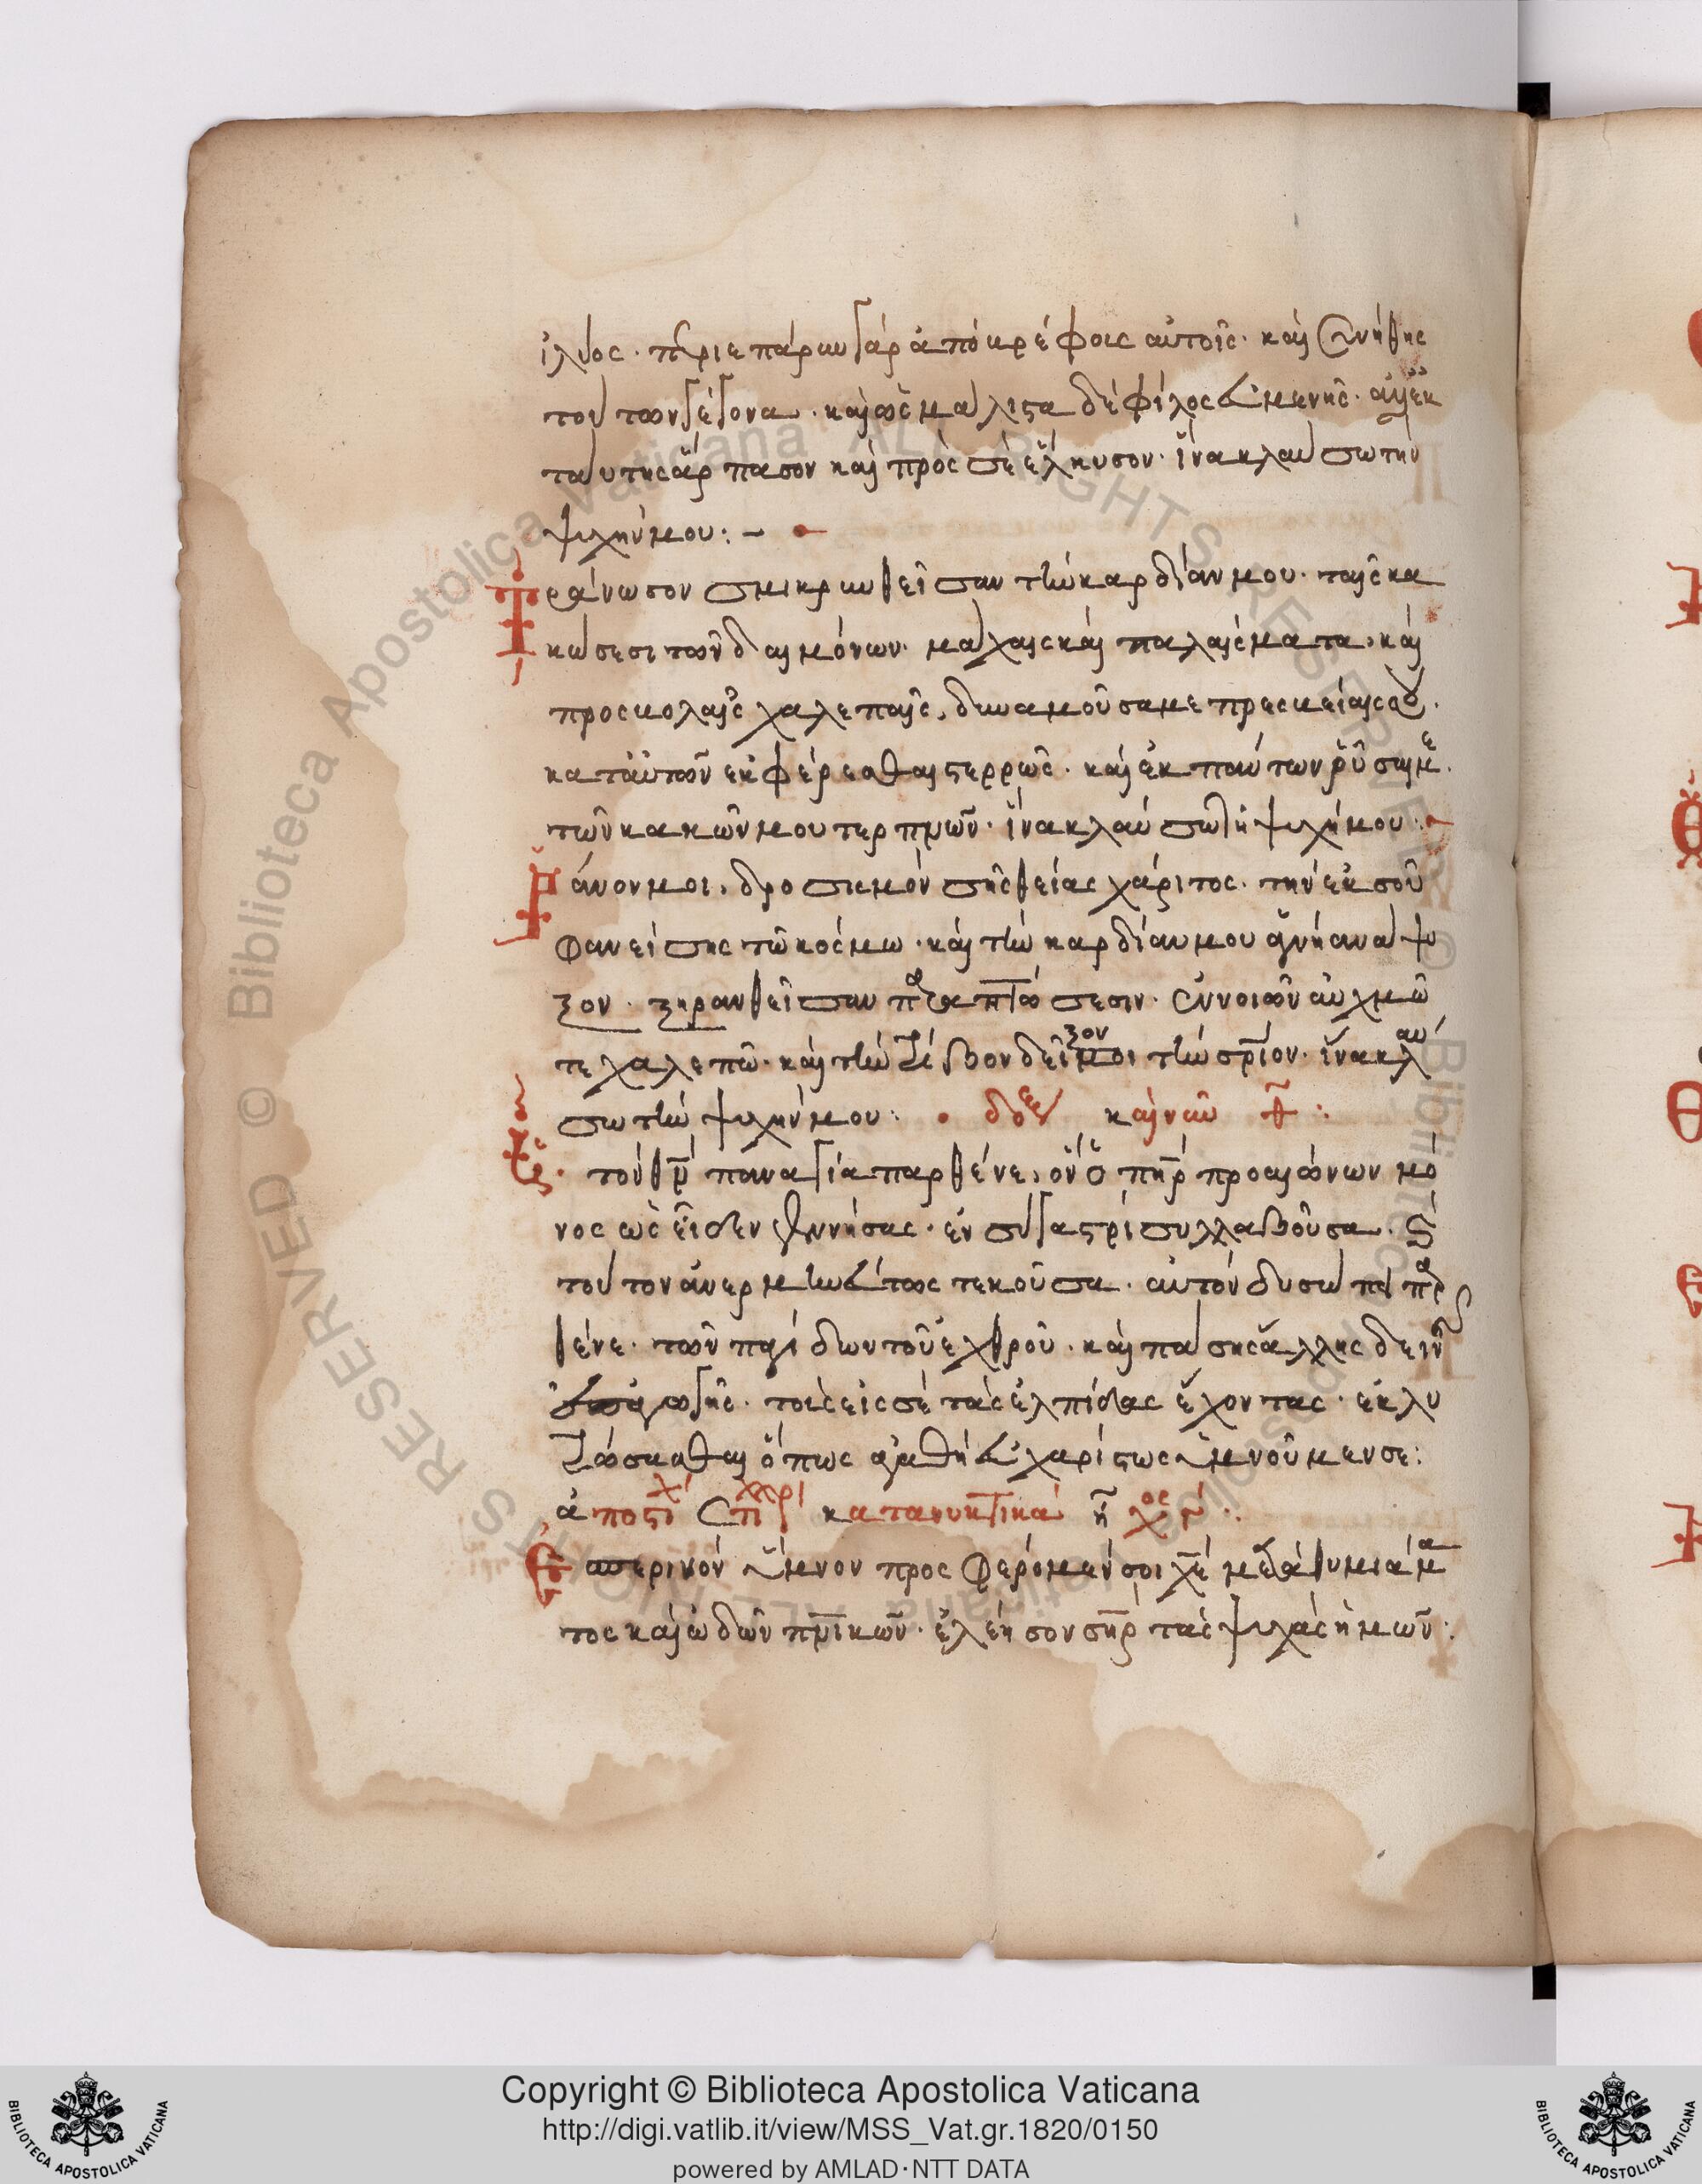 ἰλύος· περιεπάρην γὰρ ἀποκρύφοις αὐτοῖς· καὶ συνήθης
τούτων γέγονα· καὶ ὡς μάλιστα δὲ φίλος εὐμενής·
ταύτης ἅρπασον καὶ πρὸς σὲ ἕλκυσον· ἵνα κλαύσω τὴν
ψυχήν μου:
Τράνωσον σμικρυνθεῖσαν τὴν καρδίαν μου· ταῖς κα
κώσεσι τῶν δαιμόνων· μάχαις καὶ παλαίσματα· καὶ
προσβολαῖς χαλεπαῖς, δυναμοῦσα με πρεσβείαις σου·
κατ' αὐτῶν ἐκφέρεσθαι στερρῶς· καὶ ἐκ πάντων ῥῦσαι με·
τῶν κακῶν μου τερπνῶν· ἵνα κλαύσω τὴν ψυχήν μου:
Ῥάνον μοι, δροσισμὸν σῆς θείας χάριτος· τὴν ἐκ σοῦ
φανείσης τῷ κόσμῳ· καὶ τὴν καρδίαν μου ἁγνὴ ἀνάψυ
ξον· ξηρανθεῖσαν παραπτώσεσιν· ἐννοιῶν αὐχμῷ
τε χαλεπῷ· καὶ τὴν τρίβον δεῖξον μοι τὴν σρίον· ἵνα κλαύ
σω τὴν ψυχήν μου: καὶ νῦν
τοῦ θυ παναγία παρθένε, ὃν ὁ πηρ πρὸ αἰώνων μό
νος ὡς εἶδεν γεννήσας· ἐν σῇ γαστρὶ συλλαβοῦσα·
τοῦτον ἀνερμηνεύτως τεκοῦσα· αὐτὸν δυσώπει παρ
θένε· τῶν παγίδων τοῦ ἐχθροῦ· καὶ πάσης ἄλλης δεινῆς
τοὺς εἰς σὲ τὰς ἐλπίδας ἔχοντας· ἐκλυ
τρώσασθαι ὅπως ἀγαθὴ εὐχαρίστως ὑμνοῦμεν σε:
ἀποστιχ κατανυκτικὰ
Ἑσπερινὸν ὕμνον προσφέρομέν σοι χε μετὰ θυμιάμα
τος καὶ ᾠδῶν πνικῶν· ἐλέησον σηρ τὰς ψυχὰς ἡμῶν:
Copyright © Biblioteca Apostolica Vaticana
http://digi.vatlib.it/view/MSS_Vat.gr.1820/0150
powered by AMLAD·NTT DATA
BIBLIOTECA APOSTOLICA VATICANA
BIBLIOTECA APOSTOLICA VATICANA